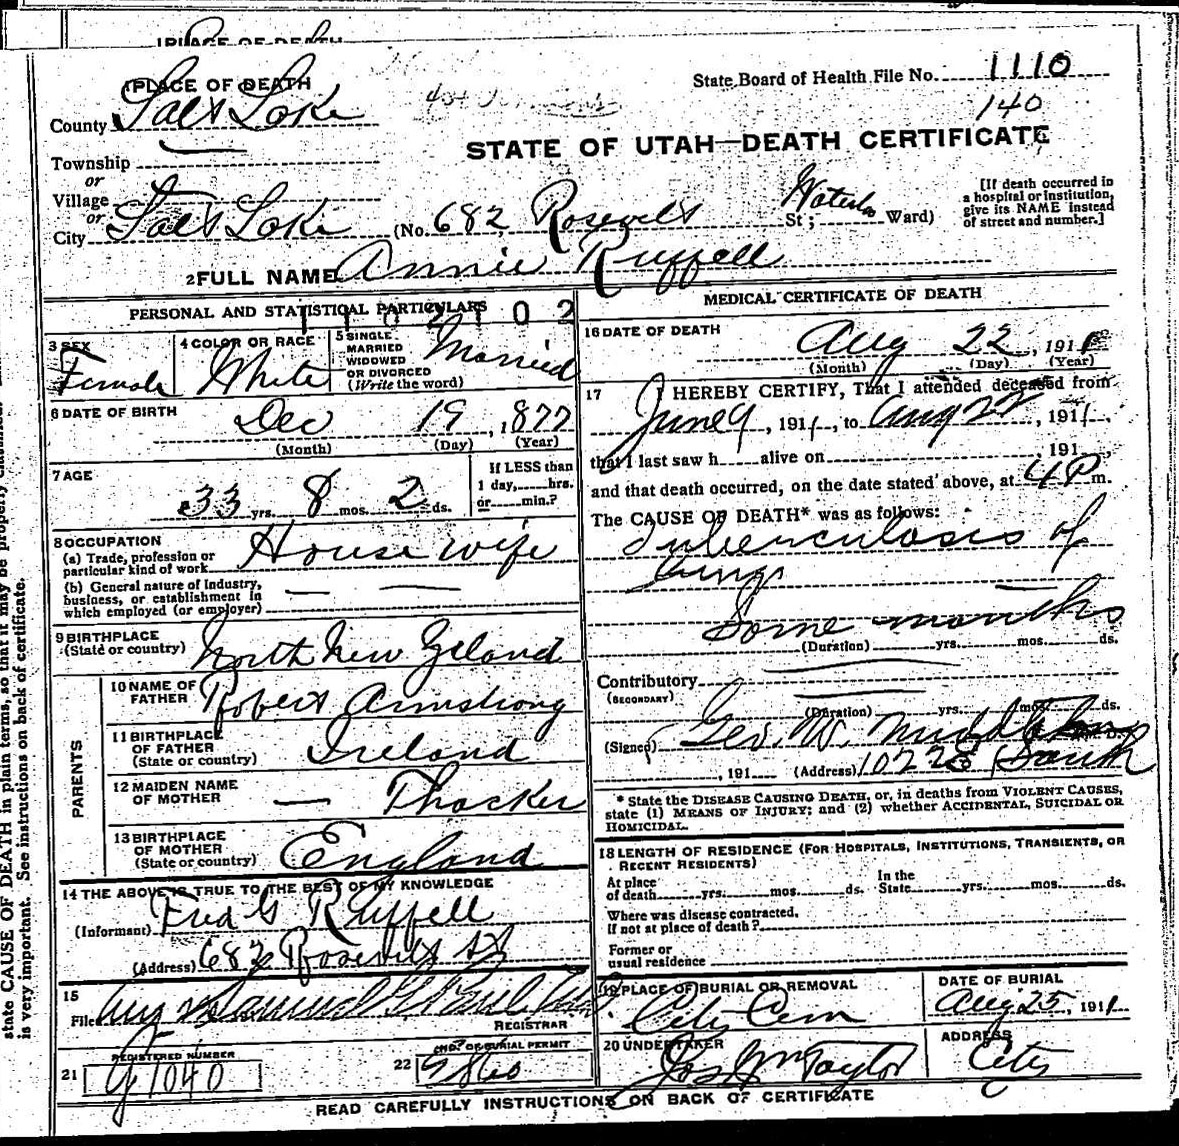 PLACE OF DEATH
1 PLACE OF DEATH
State Board of Health File No. 1110
140
County Salt Lake
STATE OF UTAH—DEATH CERTIFICATE
Township
or
Village
or
City Salt Lake (No. 682 Rosevelt St; Waterloo Ward)
[If death occurred in
a hospital or institution,
give its NAME instead
of street and number.]
2 FULL NAME Annie Ruffell
PERSONAL AND STATISTICAL PARTICULARS
1102102
3 SEX
Female
4 COLOR OR RACE
White
5 SINGLE
MARRIED
WIDOWED
OR DIVORCED
(Write the word)
Married
6 DATE OF BIRTH
Dec 19, 1877
(Month) (Day) (Year)
7 AGE
33 yrs. 8 mos. 2 ds.
If LESS than
1 day, hrs.
or min.?
8 OCCUPATION
(a) Trade, profession or
particular kind of work House wife
(b) General nature of Industry,
business, or establishment in
which employed (or employer)
9 BIRTHPLACE
(State or country) North New Zeland
PARENTS
10 NAME OF
FATHER Robert Armstrong
11 BIRTHPLACE
OF FATHER
(State or country) Ireland
12 MAIDEN NAME
OF MOTHER — Thacker
13 BIRTHPLACE
OF MOTHER
(State or country) England
14 THE ABOVE IS TRUE TO THE BEST OF MY KNOWLEDGE
(Informant) Fred G Ruffell
(Address) 682 Rosevelt St
15
Filed Aug
REGISTRAR
REGISTERED NUMBER
21 G1040
NO. OF BURIAL PERMIT
22 9860
MEDICAL CERTIFICATE OF DEATH
16 DATE OF DEATH
Aug 22, 1911
(Month) (Day) (Year)
17 I HEREBY CERTIFY, That I attended deceased from
June 9, 1911, to Aug 22, 1911,
that I last saw h alive on , 191 ,
and that death occurred, on the date stated above, at 4 P m.
The CAUSE OF DEATH* was as follows:
Tuberculosis of
lungs
Some months
(Duration) yrs. mos. ds.
Contributory
(SECONDARY)
(Duration) yrs. mos. ds.
(Signed) Geo. W. Middleton
, 191 (Address) South
* State the DISEASE CAUSING DEATH, or, in deaths from VIOLENT CAUSES,
state (1) MEANS OF INJURY; and (2) whether ACCIDENTAL, SUICIDAL OR
HOMICIDAL.
18 LENGTH OF RESIDENCE (FOR HOSPITALS, INSTITUTIONS, TRANSIENTS, OR
RECENT RESIDENTS)
At place
of death yrs. mos. ds.
In the
State yrs. mos. ds.
Where was disease contracted.
if not at place of death?
Former or
usual residence
19 PLACE OF BURIAL OR REMOVAL
City Cem
DATE OF BURIAL
Aug 25, 1911
20 UNDERTAKER
Jos Wm Taylor
ADDRESS
City
READ CAREFULLY INSTRUCTIONS ON BACK OF CERTIFICATE
state CAUSE OF DEATH in plain terms, so that it may be properly
is very important. See instructions on back of certificate.